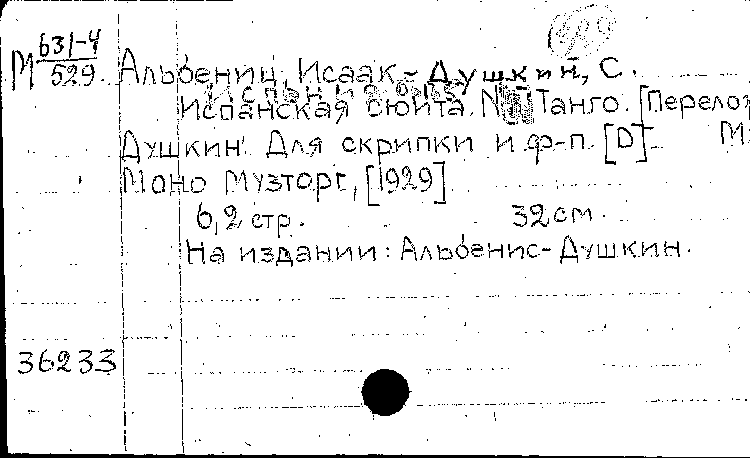 М 631-4
529
Альбениц, Исаак - Душкин, С.
Испанская сюита. Танго. [Перелож
Душкин. Для скрипки и ф-п. [D].
Моно Музторг, [1929]
6,2 стр. 32 см.
На издании: Альбенис-Душкин.
36233